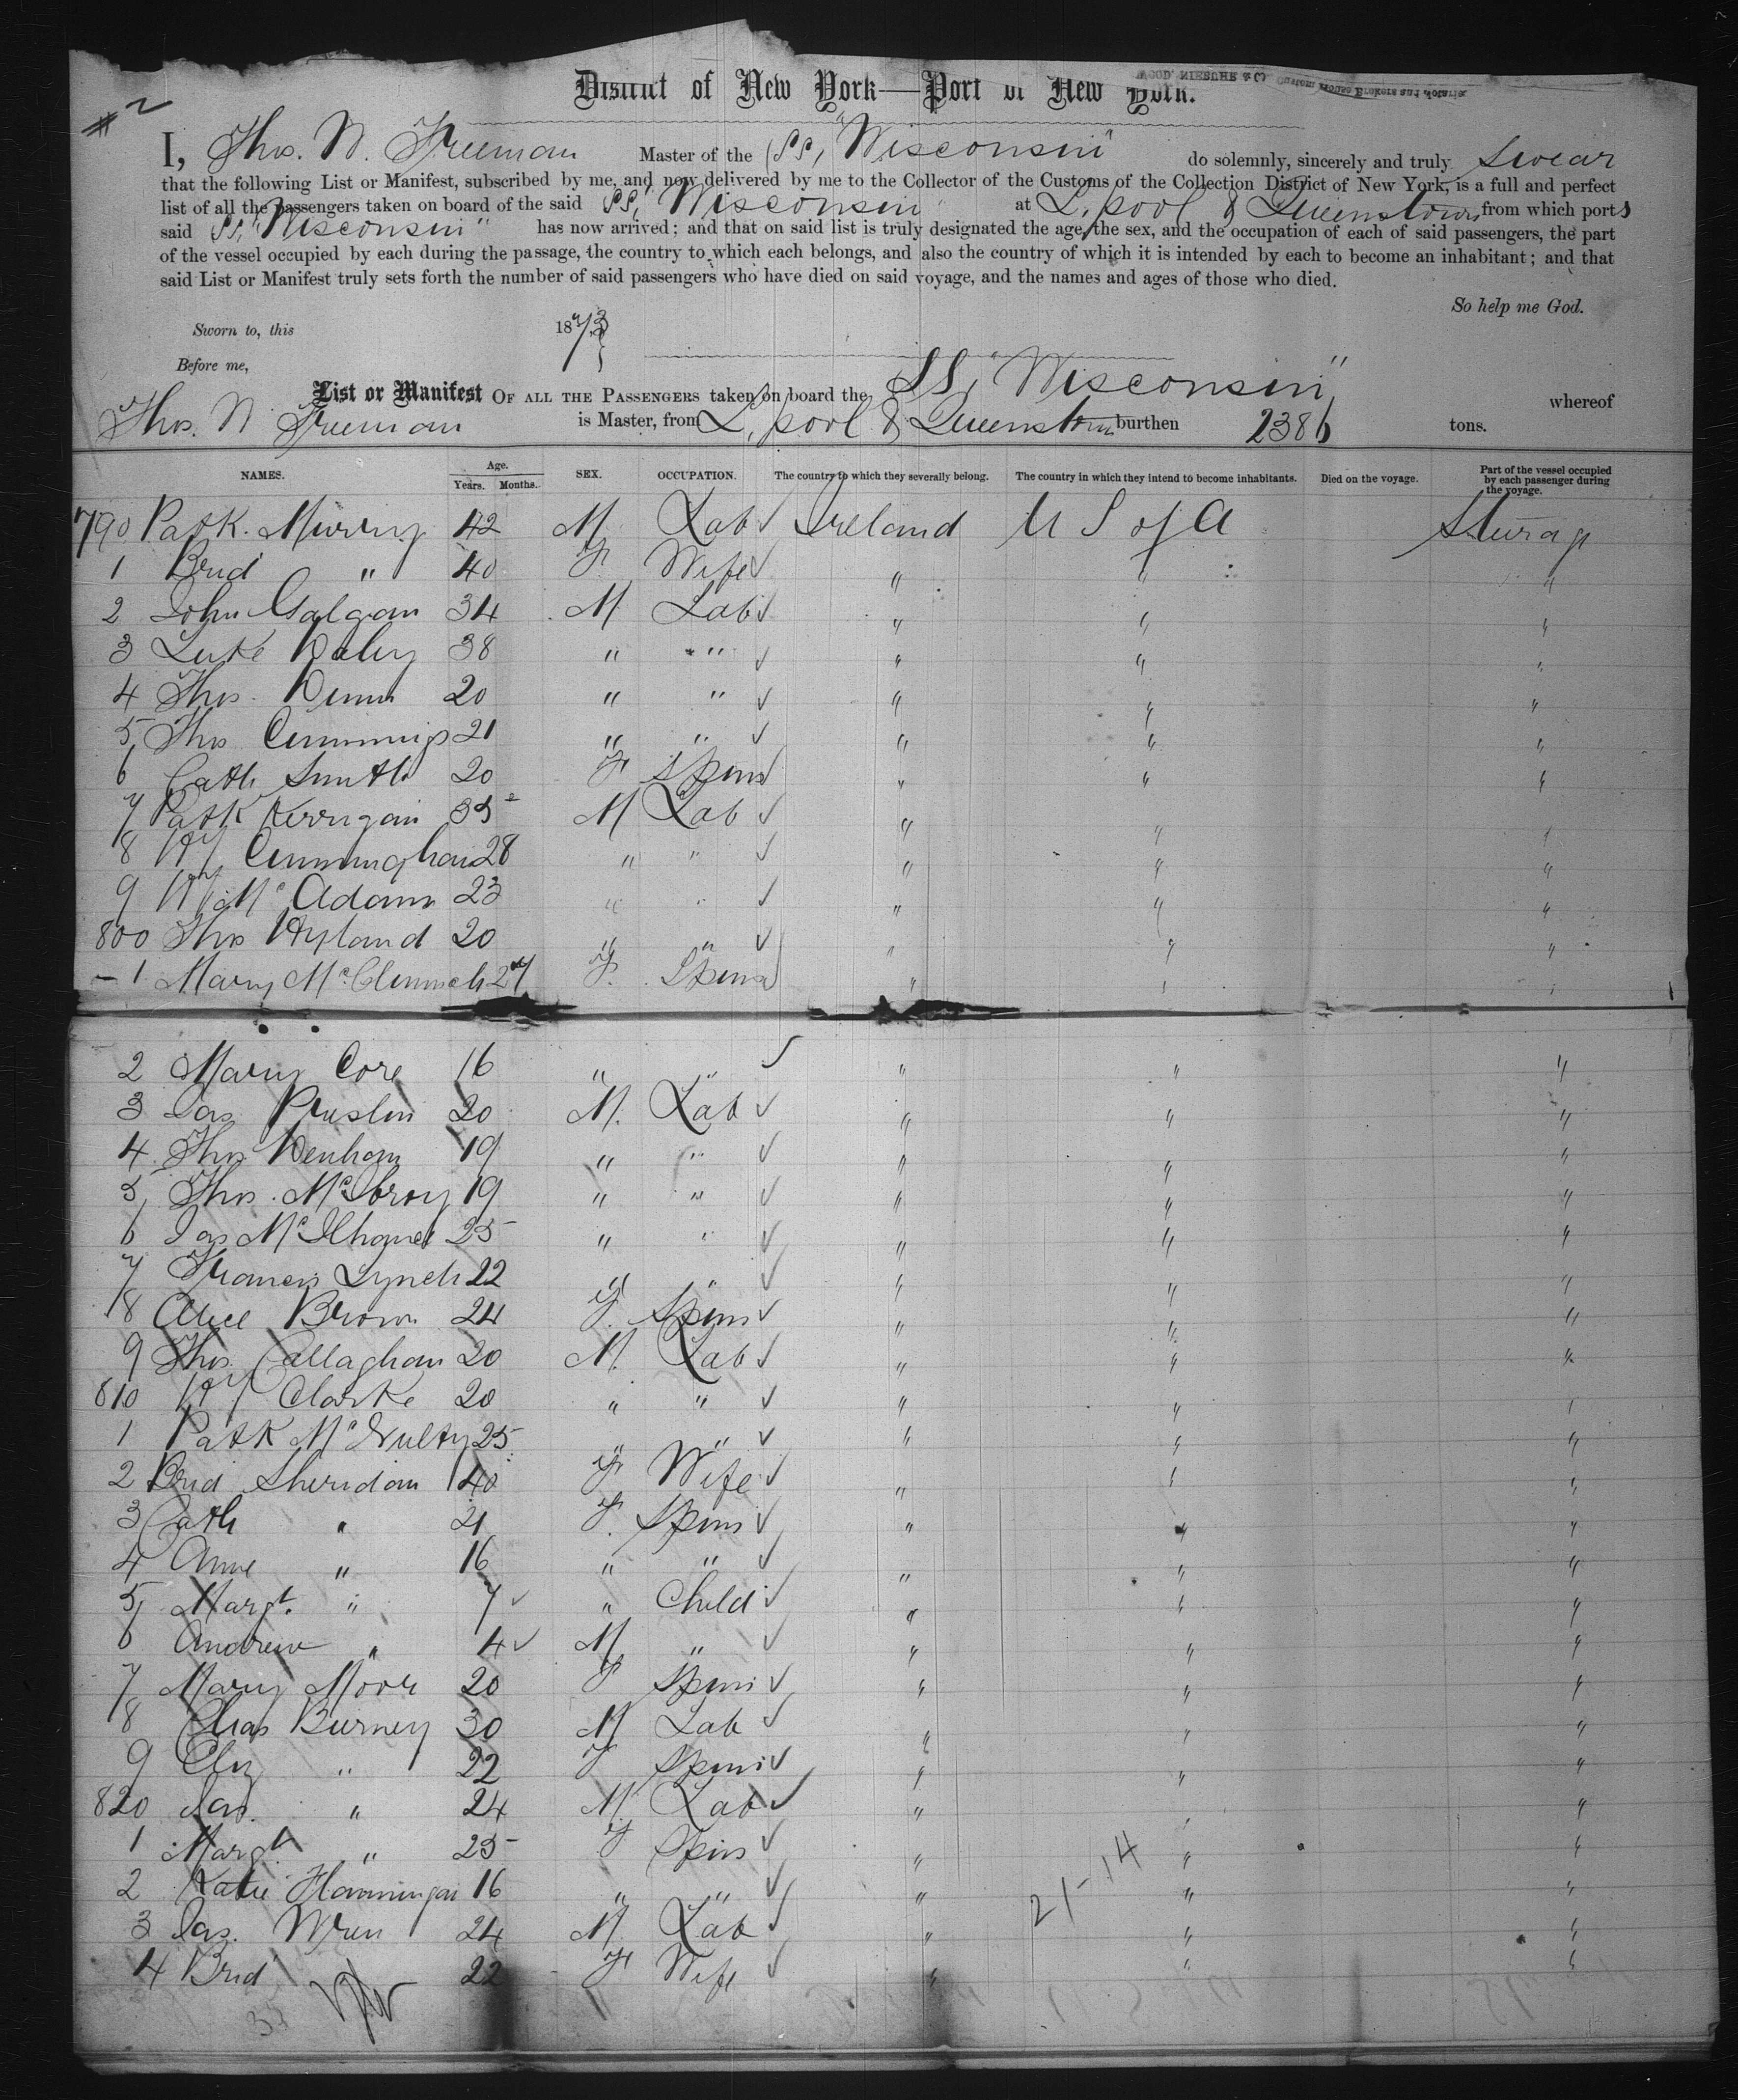 # 2
District of New York—Port of New York.
I, Thos. W. Freeman Master of the SS, "Wisconsin" do solemnly, sincerely and truly Swear
that the following List or Manifest, subscribed by me, and now delivered by me to the Collector of the Customs of the Collection District of New York, is a full and perfect
list of all the passengers taken on board of the said SS, "Wisconsin" at L,pool & Queenstown from which ports
said SS, "Wisconsin" has now arrived; and that on said list is truly designated the age, the sex, and the occupation of each of said passengers, the part
of the vessel occupied by each during the passage, the country to which each belongs, and also the country of which it is intended by each to become an inhabitant; and that
said List or Manifest truly sets forth the number of said passengers who have died on said voyage, and the names and ages of those who died.
So help me God.
Sworn to, this 1873
Before me,
List or Manifest OF ALL THE PASSENGERS taken on board the SS, "Wisconsin" whereof
Thos. W Freeman is Master, from L,pool & Queenstown burthen 2386 tons.
NAMES. Age. Years. Months. SEX. OCCUPATION. The country to which they severally belong. The country in which they intend to become inhabitants. Died on the voyage. Part of the vessel occupied by each passenger during the voyage.
790 Patk. Murray 42 M Lab Ireland U S of A Steerag
1 Brid " 40 F Wife " " "
2 John Galgan 34 M Lab " " "
3 Luke Daley 38 " " " " "
4 Thos. Dunn 20 " " " " "
5 Thos Cummings 21 " " " " "
6 Cath Smith 20 F Spins " " "
7 Patk Kerrigan 35 M Lab " " "
8 Wm Cunningham 28 " " " " "
9 Wm McAdam 23 " " " " "
800 Thos Hyland 20 " " " " "
1 Mary 27 F. Spins " " "
2 Mary Core 16 " " " " "
3 Jas 20 M. Lab " " "
4 Thos Denham 19 " " " " "
5 Thos. 19 " " " " "
6 Jas 25 " " " " "
7 Francis Lynch 22 " " " " "
8 Alice Brown 24 F. Spins " " "
9 Thos. Callaghan 20 M. Lab " " "
810 Clarke 20 " " " " "
1 Patk McNulty 25 " " " " "
2 Brid Sheridan 40 F Wife " " "
3 Cath " 21 F. Spins " " "
4 Anne " 16 " " " " "
5 Margt. " 7 " Child " " "
6 Andrew " 4 M " " " "
7 Mary Moor 20 F Spins " " "
8 Chas Burney 30 M Lab " " "
9 Eliz " 22 F Spins " " "
820 Jas. " 24 M Lab " " "
1 Margt " 25 F Spins " " "
2 Katie 16 " " " " "
3 Jas. Wren 24 M Lab " " "
4 Brid 22 F Wife " " "
21-14